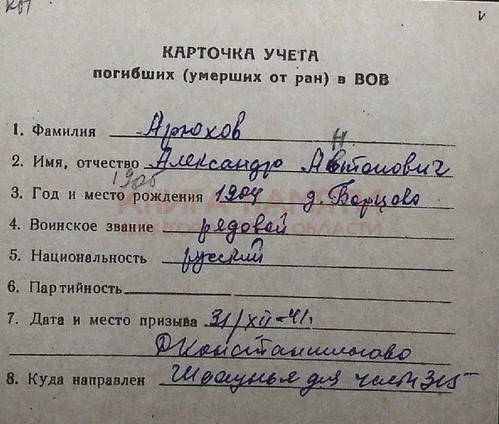 КАРТОЧКА УЧЕТА
погибших (умерших от ран) в ВОВ
1. Фамилия Арюхов
Н
2. Имя, отчество Александр Автонович
1905
3. Год и место рождения 1904 д. Борцово
КНИГА ПАМЯТИ
ОБЛАСТИ
4. Воинское звание рядовой
5. Национальность русский
6. Партийность
7. Дата и место призыва 31/XII-41г.
8. Куда направлен для части 315